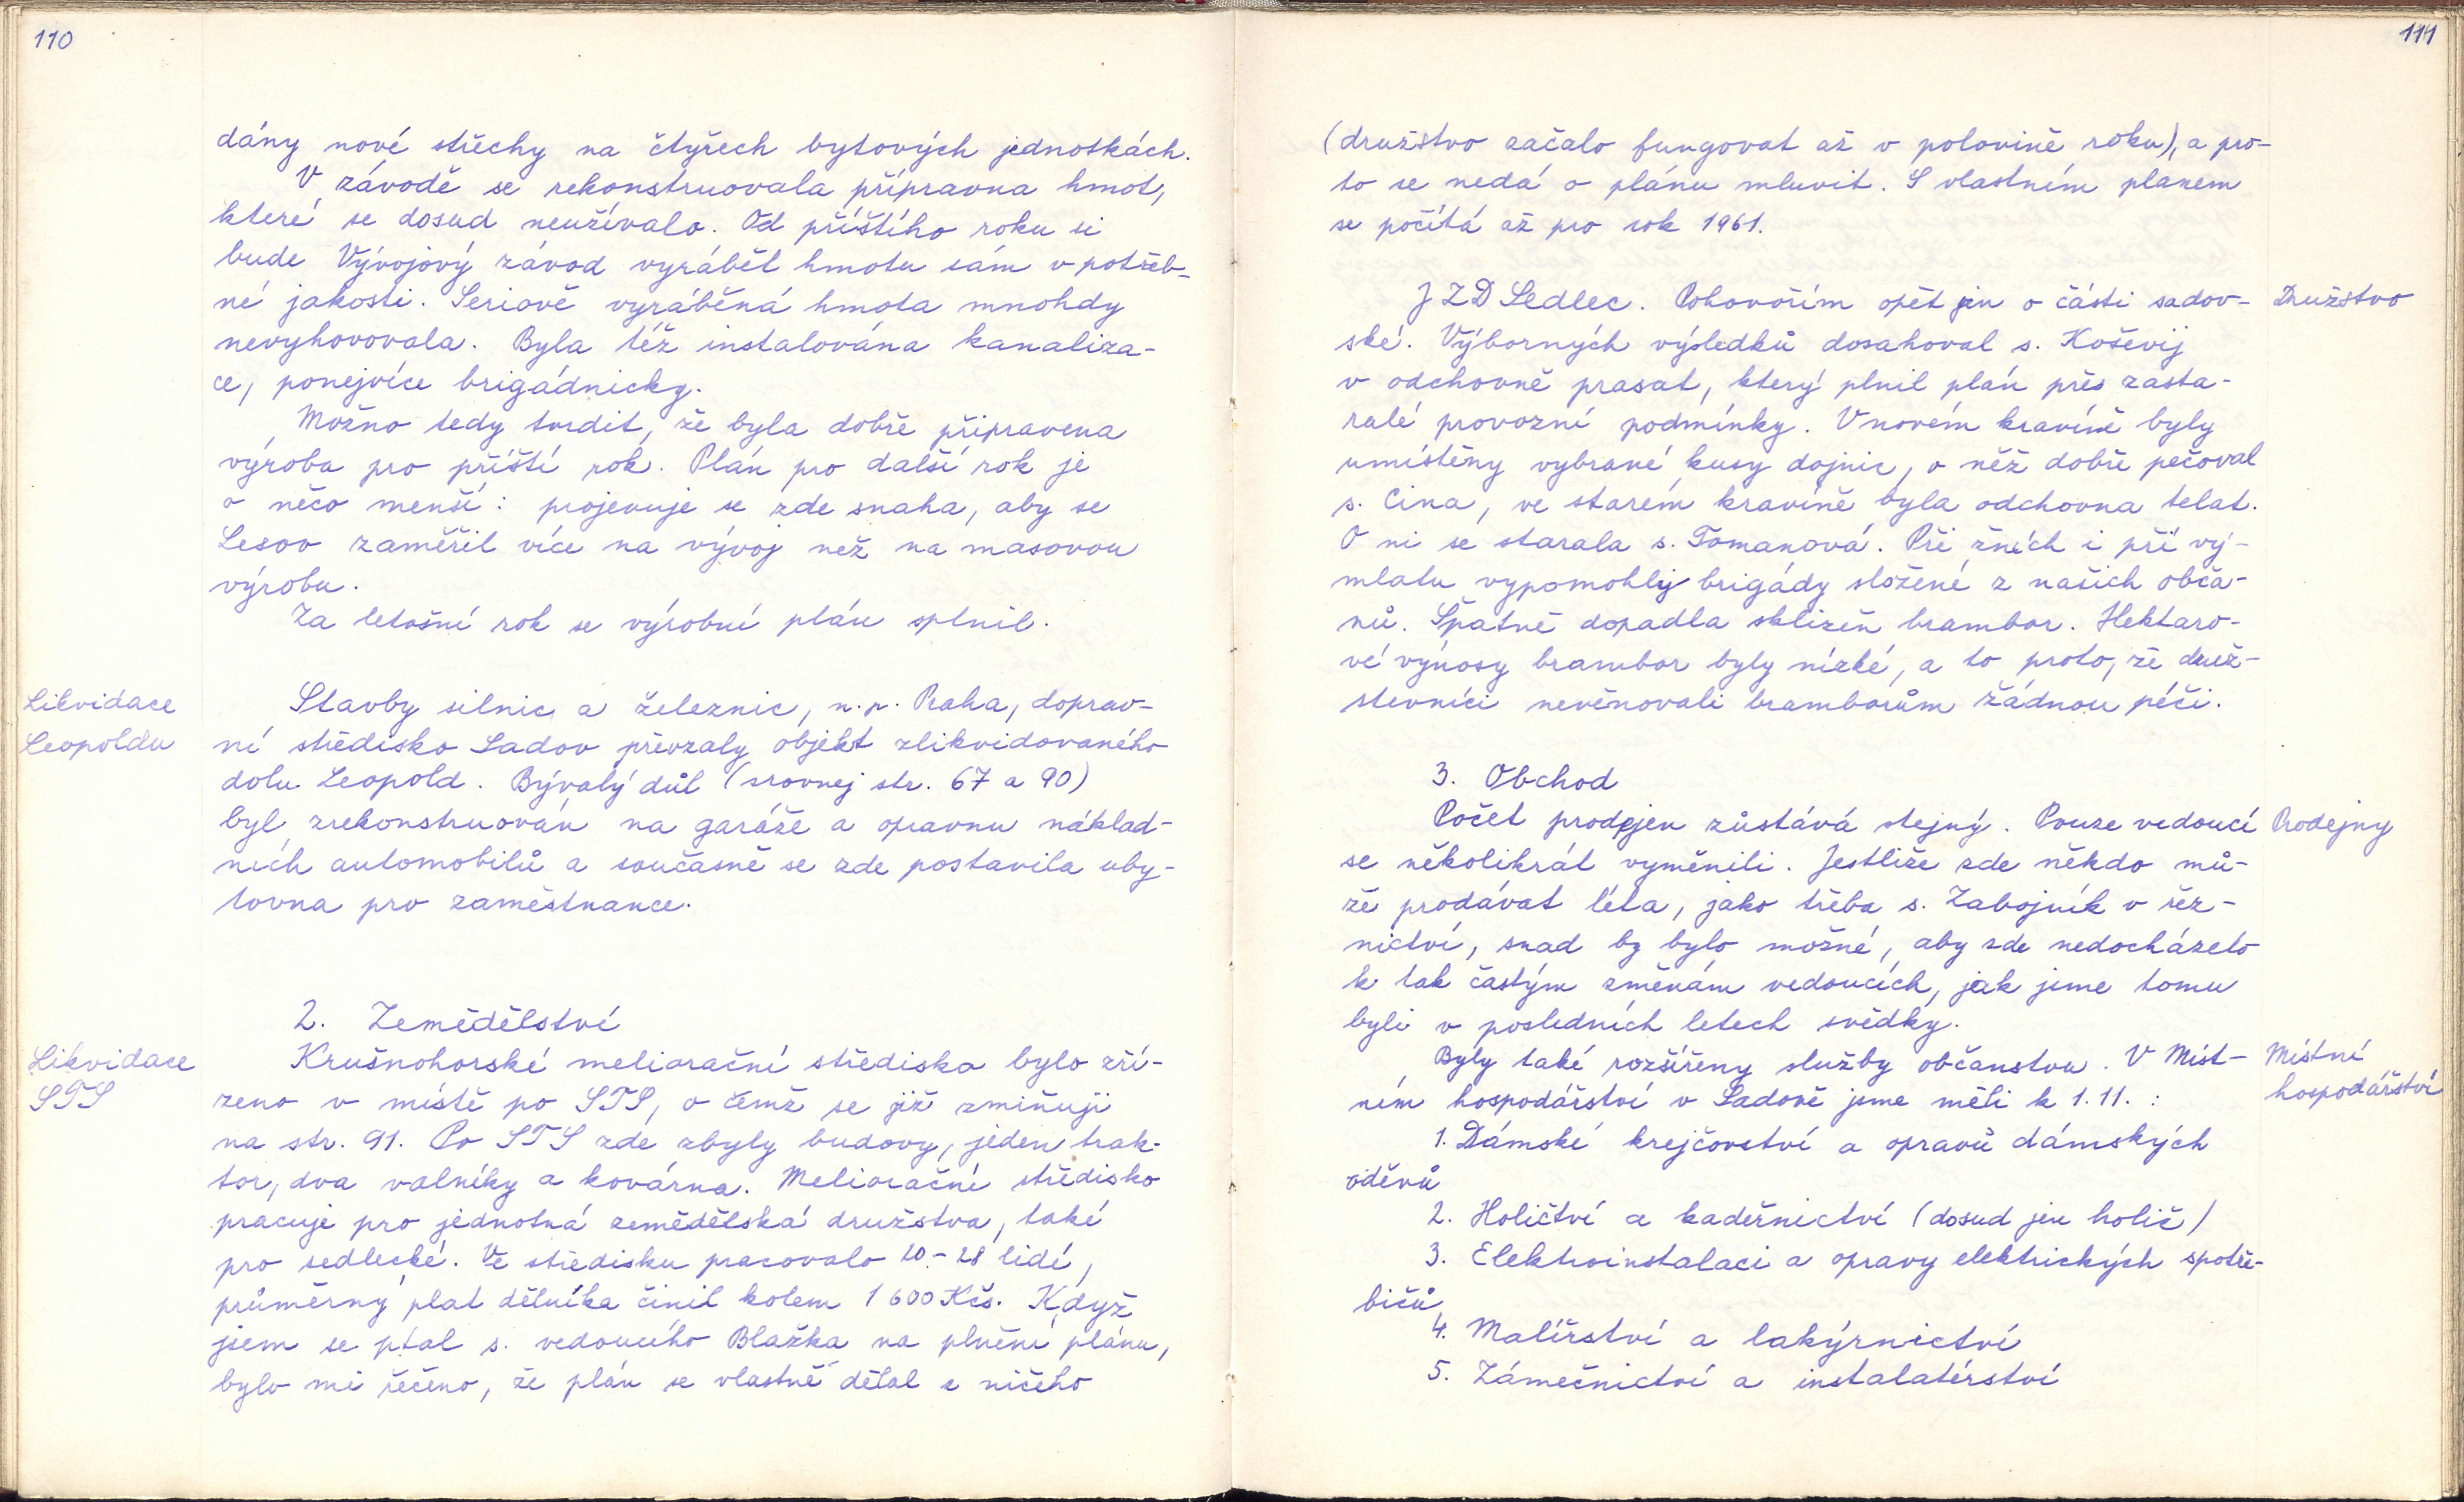 110
dány nové střechy na čtyřech bytových jednotkách.
V závodě se rekonstruovala přípravna hmot,
které se dosud neužívalo. Od příštího roku si
bude Vývojový závod vyrábět hmotu sám v potřeb-
né jakosti. Seriově vyráběná hmota mnohdy
nevyhovovala. Byla též instalována kanaliza-
ce, ponejvíce brigádnicky.
Možno tedy tvrdit, že byla dobře připravena
výroba pro příští rok. Plán pro další rok je
o něco menší: projevuje se zde snaha, aby se
Lesov zaměřil více na vývoj než na masovou
výrobu.
Za letošní rok se výrobní plán splnil.
Likvidace
Leopoldu
Stavby silnic a železnic, n.p. Praha, doprav-
ní středisko Sadov převzaly objekt zlikvidovaného
dolu Leopold. Bývalý důl (srovnej str. 67 a 90)
byl zrekonstruován na garáže a opravnu náklad-
ních automobilů a současně se zde postavila uby-
tovna pro zaměstnance.
2. Zemědělství
Likvidace
STS
Krušnohorské meliorační středisko bylo zří-
zeno v místě po STS, o čemž se již zmiňuji
na str. 91. Po STS zde zbyly budovy, jeden trak-
tor, dva valníky a kovárna. Meliorační středisko
pracuje pro jednotná zemědělská družstva, také
pro sedlecké. Ve středisku pracovalo 20-28 lidí,
průměrný plat dělníka činil kolem 1 600 Kčs. Když
jsem se ptal s. vedoucího Blažka na plnění plánu,
bylo mi řečeno, že plán se vlastně dělal z ničeho
111
(družstvo začalo fungovat až v polovině roku), a pro-
to se nedá o plánu mluvit. S vlastním planem
se počítá až pro rok 1961.
Družstvo
JZD Sedlec. Pohovořím opět jen o části sadov-
ské. Výborných výsledků dosahoval s. Koševij
v odchovně prasat, který plnil plán přes zasta-
ralé provozní podmínky. V novém kravíně byly
umístěny vybrané kusy dojnic, o něž dobře pečoval
s. Cina, ve starém kravíně byla odchovna telat.
O ni se starala s. Tomanová. Při žních i při vý-
mlatu vypomohly brigády složené z našich obča-
nů. Špatně dopadla sklizeň brambor. Hektaro-
vé výnosy brambor byly nízké, a to proto, že druž-
stevníci nevěnovali bramborům žádnou péči.
3. Obchod
Prodejny
Počet prodejen zůstává stejný. Pouze vedoucí
se několikrát vyměnili. Jestliže zde někdo mů-
že prodávat léta, jako třeba s. Zabojník v řez-
nictví, snad by bylo možné, aby zde nedocházelo
k tak častým změnám vedoucích, jak jsme tomu
byli v posledních letech svědky.
Místní
hospodářství
Byly také rozšířeny služby občanstvu. V Míst-
ním hospodářství v Sadově jsme měli k 1.11. :
1. Dámské krejčovství a opravů dámských
oděvů
2. Holičtví a kadeřnictví (dosud jen holič)
3. Elektroinstalaci a opravy elektrických spotře-
bičů
4. Malířství a lakýrnictví
5. Zámečnictví a instalatérství